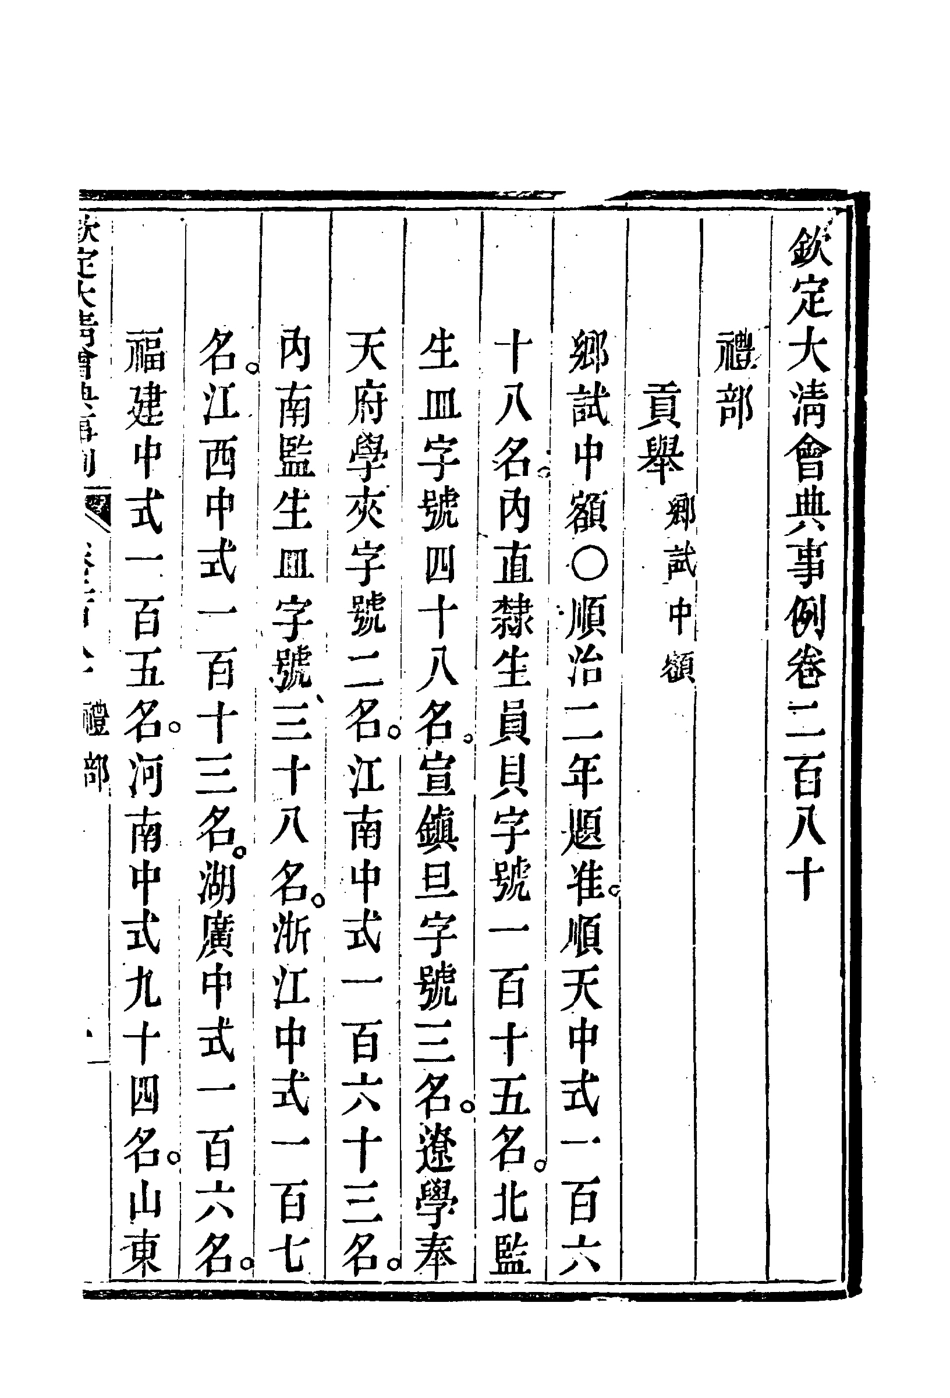 欽定大清會典事例卷二百八十
禮部
貢舉 鄉試中額
鄉試中額〇順治二年題准。順天中式一百六
十八名。內直隸生員貝字號一百十五名。北監
生皿字號四十八名。宣鎮旦字號三名。遼學奉
天府學夾字號二名。江南中式一百六十三名。
內南監生皿字號、三十八名。浙江中式一百七
名。江西中式一百十三名。湖廣中式一百六名。
福建中式一百五名。河南中式九十四名。山東
欽定大清會典事例 禮部 一